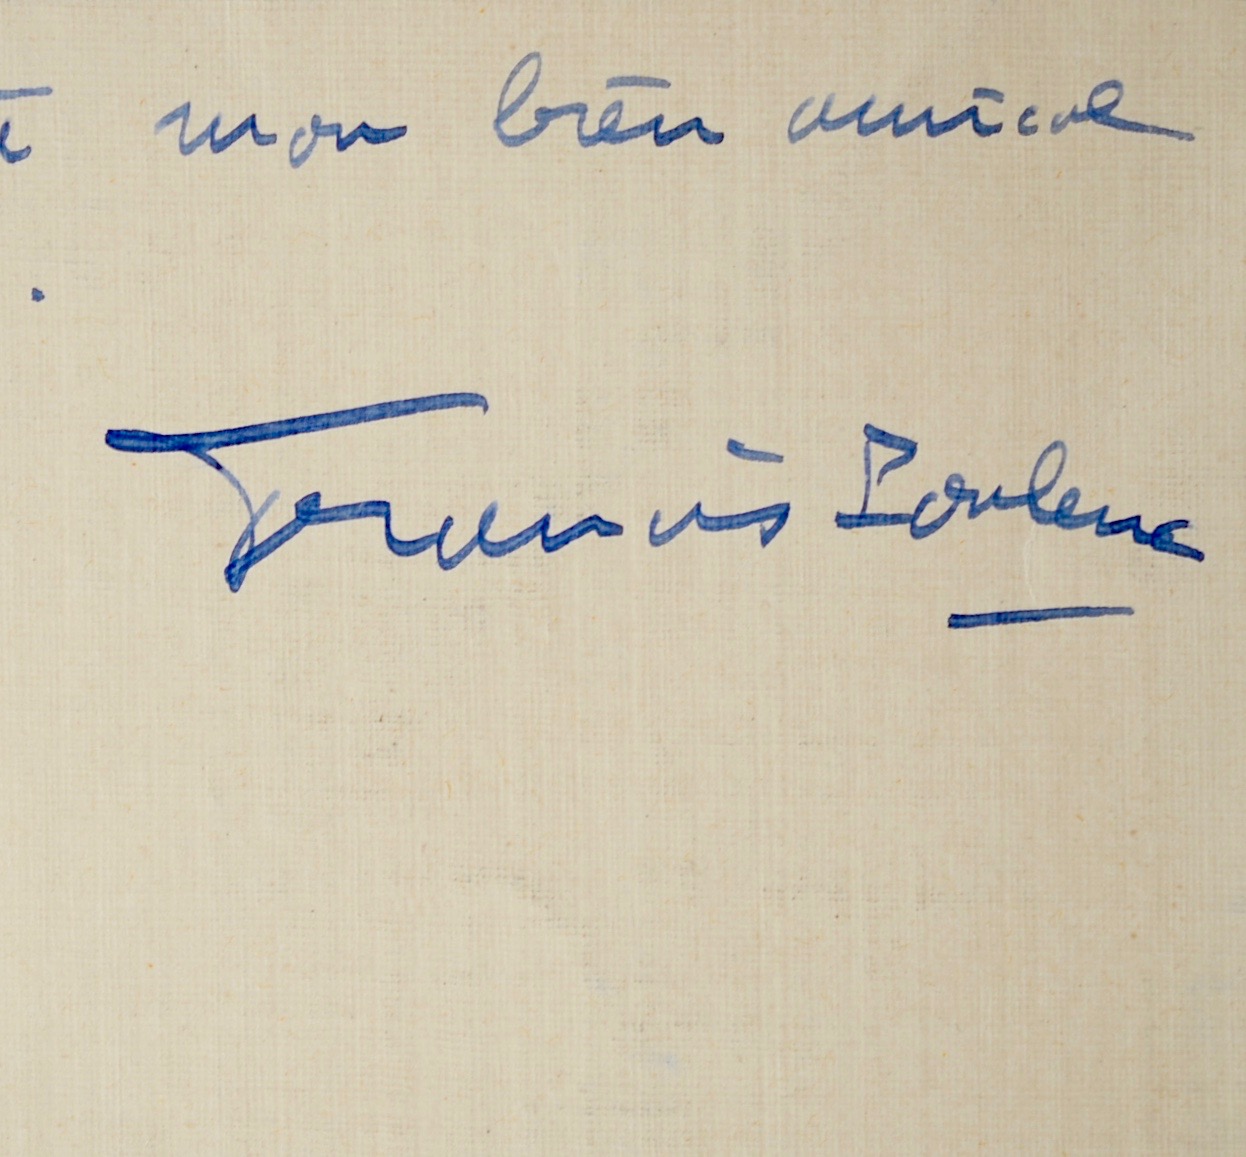 mon bien amical
Francis Poulenc